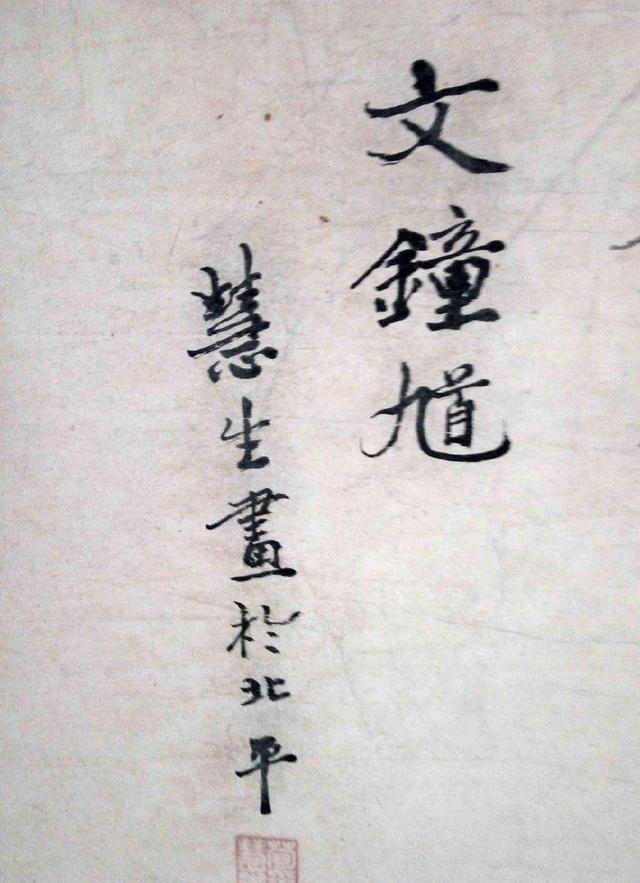 文鐘馗
慧生畫於北平